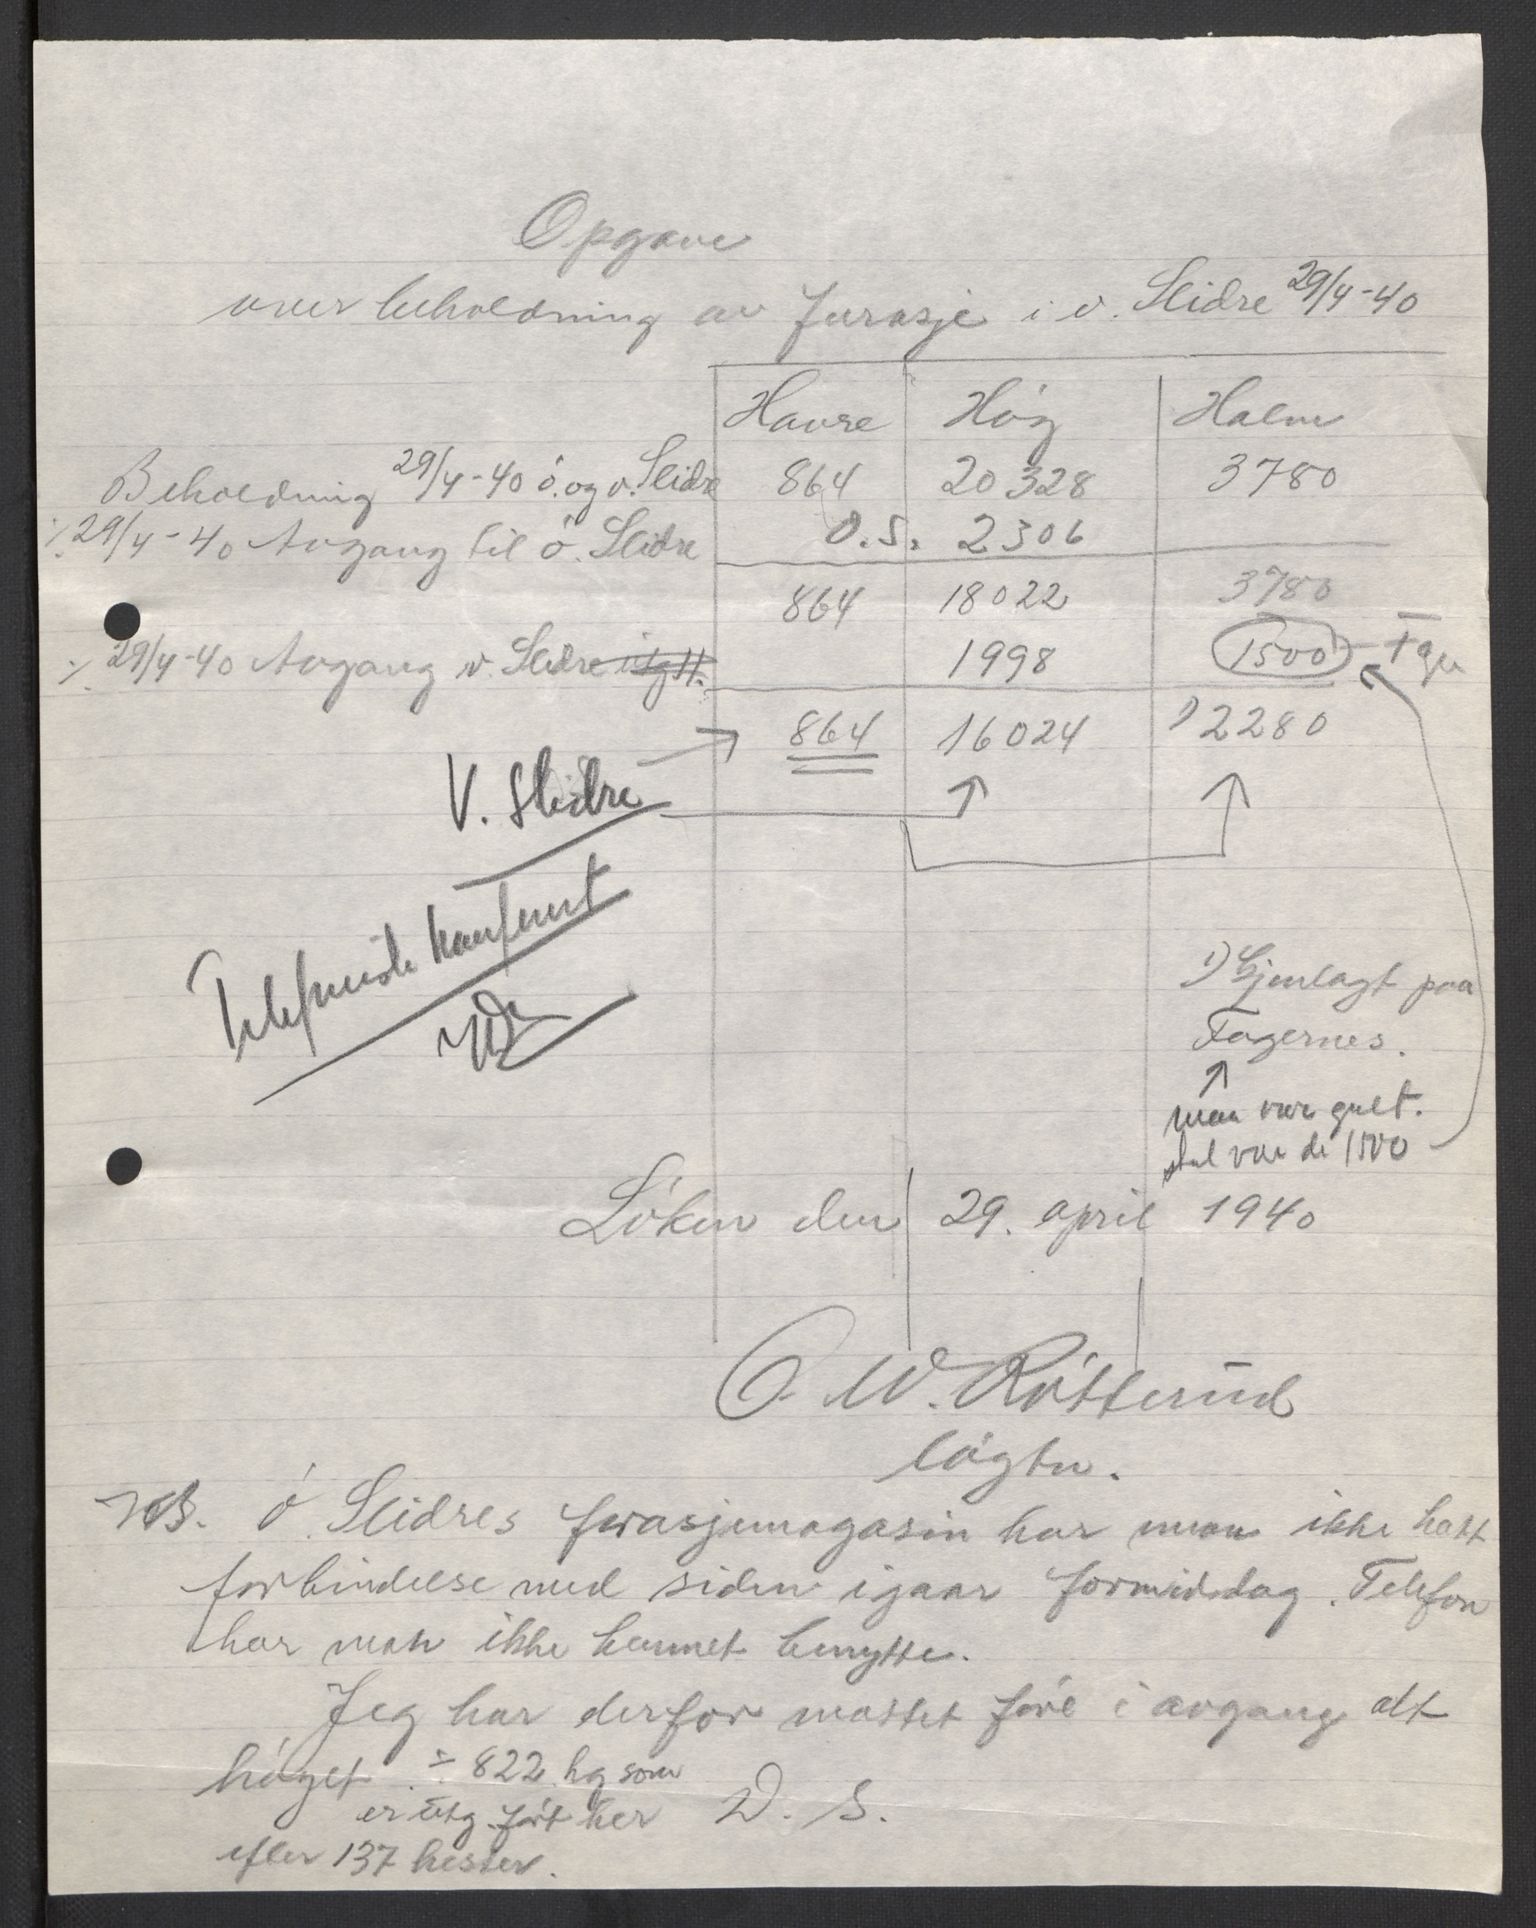 Opgave
over beholdning av furasje i v. Slidre 29/4-40
Havre Höy Halm
Beholdning 29/4-40 ö. og v. Slidre 864 20 328 3780
÷ 29/4-40 Avgang til ö. Slidre O.S. 2306
864 18022 3780
÷ 29/4-40 Avgang v. Slidre 1998 1500 Fager
864 16024 1) 2280
V. Slidre
konfernert
1) Gjenlagt paa
Fagernes.
man var gult.
skal være de 1500
Löken den 29. april 1940
O. W. Rötterud
lögtn.
NB. ö. Slidres furasjemagasin har man ikke hatt
forbindelse med siden igaar formiddag. Telefon
har man ikke kunnet benytte.
Jeg har derfor maattet före i avgang alt
höyet ÷ 822 kg som
er utg. fört her D. S.
efter 137 hester.